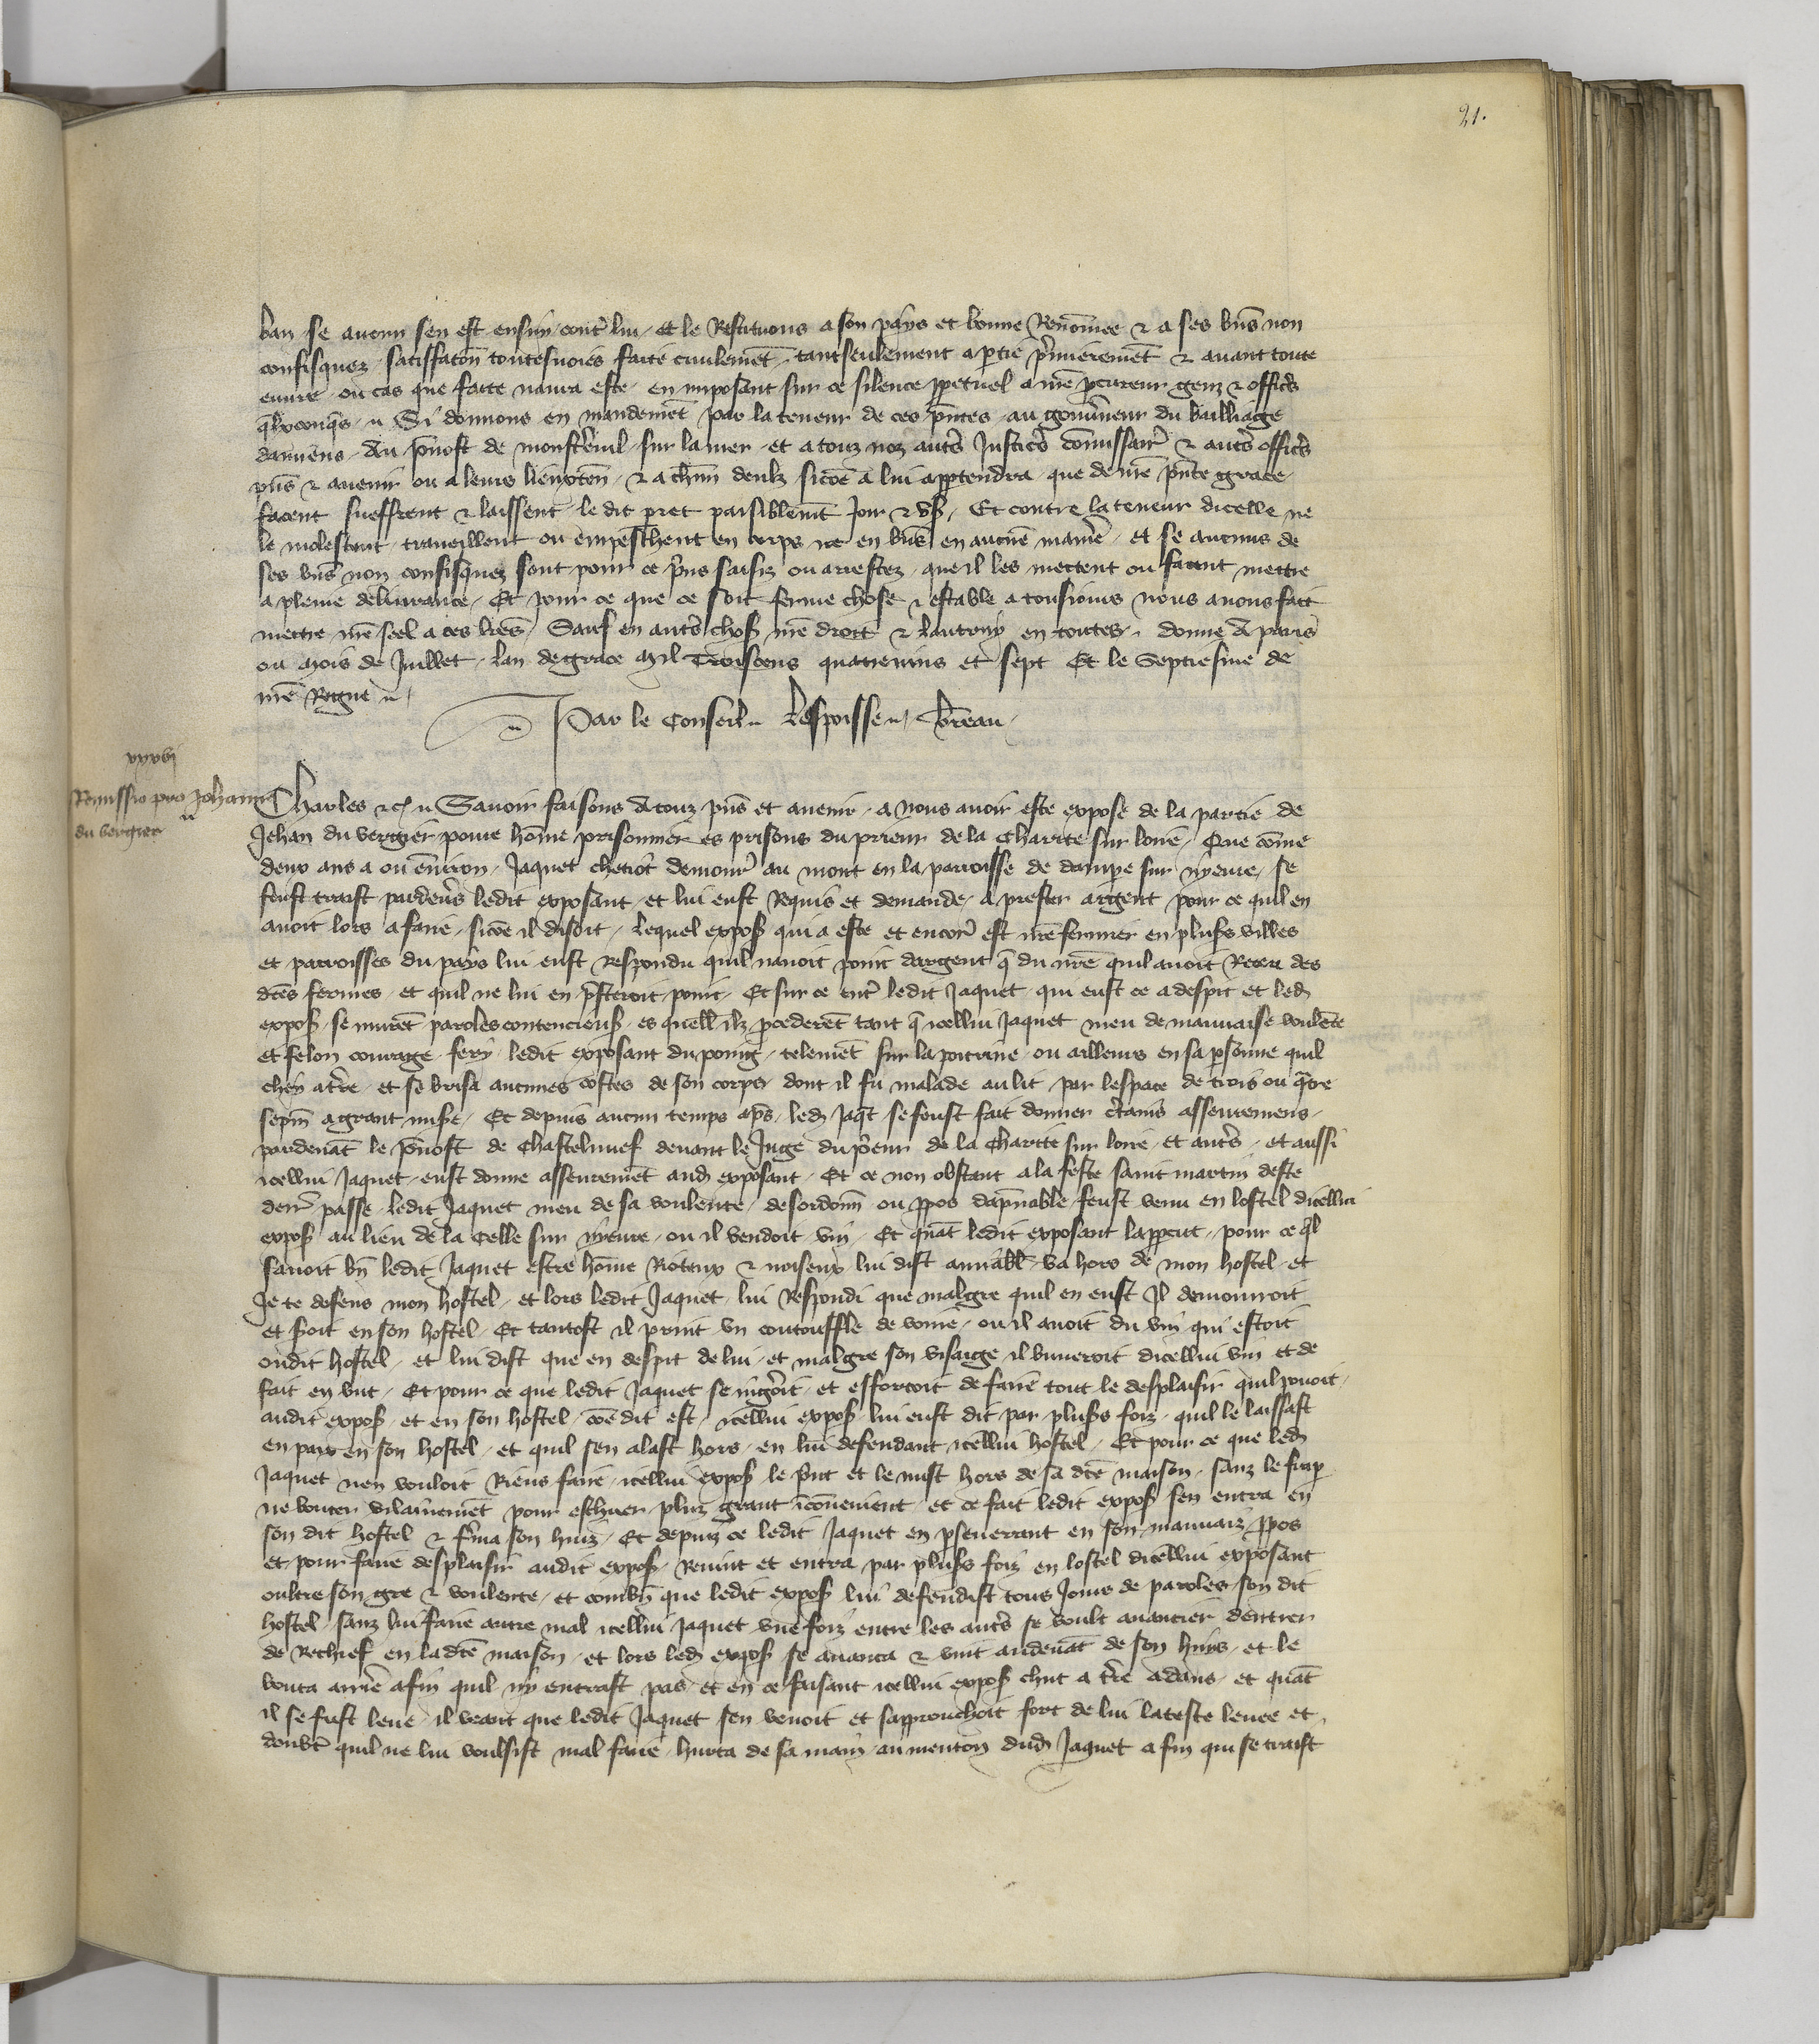 21.
ban se aucun sen est ensuy contre lui et le Restituons a son pays et bonne Renommee & a ses bn̄s non
confisquez satisfaction toutesvoies faite civilement tantseulement a partie premierement & avant toute
euvre ou cas que faitte naura este en imposant sur ce silence perpetuel a nr̄e procureur genz & officiers
quelxconques Si donnons en mandement par la teneur de ces pn̄tes au gouverneur du bailliage
damiens Au prevost de monstereul sur la mer et a touz noz autres Justiciers commissaires & autres officiers
pn̄s & avenir ou a leurs lieuxten̄ & a chūn deulx sicōe a lui appartendra que de nr̄e pn̄te grace
facent sueffrent & laissent le dit pret paisiblement Joir & us̄ Et contre la teneur dicelle ne
le molestent traveillent ou empeschent en corps ne en bn̄s en aucune maniere et se aucuns de
ses bn̄s non confisquez sont pour ce prins saisiz ou arrestez que il les mettent ou facent mettre
a pleine delivrance Et pour ce que ce soit ferme chose & estable a tousiours nous avons fait
mettre nr̄e seel a ces lr̄es Sauf en autres chos̄ nr̄e droit & lautruy en toutes donne A paris
ou mois de Juillet lan de grace Mil Troiscens quatrevins et sept Et le Septiesme de
nr̄e Regne
Par le Conseil Lespoisse
xxxvj
Remissio pro Johanne
du vergier
Charles &c Savoir faisons A touz pn̄s et avenir a nous avoir este expose de la partie de
Jehan du vergier povre hōme prisonnier es prisons du prieur de la Charite sur loire Que cōme
deux ans a ou environ Jaquet chetot demourant au mont en la parroisse de dampe sur nyevre se
feust traist pardevers ledit exposant et lui eust Requis et demande a prester argent pour ce quil en
avoit lors a faire sicōe il disoit lequel expos̄ qui a este et encore est nr̄e fermier en plus̄s villes
et parroisses du pays lui eust respondu quil navoit point dargent q̄ du nr̄e quil avoit Receu des
dictes fermes et quil ne lui en presteroit point Et sur ce entre ledit Jaquet qui eust ce a despit et led
expos̄ se murēt paroles contencieus̄ es quelles ilz procederēt tant q̄ icellui Jaquet meu de mauvaise voulēte
et felon courage fery ledit exposant du poing telemēt sur la poitrine ou ailleurs en sa personne quil
chey a terre et se brisa aucunes costes de son corps dont il fu malade au lit par lespace de trois ou quatre
sepm̄ a grant mise Et depuis aucun temps apres led Jaqt se feust fait donner certains asseuremens
pardevāt le prevost de Chastelnuef devant le Juge du prieur de la Charite sur loire et autres et aussi
icellui Jaquet eust donne asseurement aud exposant Et ce non obstant a la feste saint martin deste
derr̄ passe ledit Jaquet meu de sa voulente desordonn̄ ou propos dapnable feust venu en lostel dicellui
expos̄ au lieu de la Celle sur nyevre ou il vendoit vin Et quāt ledit exposant lappercut pour ce q̄l
savoit bn̄ ledit Jaquet estre hōme Rioteux & noiseux lui dist amiabl̄ va hors de mon hostel et
Je te defens mon hostel et lors ledit Jaquet lui Respondi que malgre quil en eust Il demourroit
et seroit en son hostel Et tantost il print un coutouffle de voirre ou il avoit du vin qui estoit
oudit hostel et lui dist que en despit de lui et malgre son visaige il buveroit dicellui vin et de
fait en but Et pour ce que ledit Jaquet se ingeroit et efforcoit de faire tout le desplaisir quil povoit
audit expos̄ et en son hostel cōe dit est icellui expos̄ lui eust dit par plus̄s foiz quil le laissast
en paix en son hostel et quil sen alast hors en lui defendant icellui hostel Et pour ce que led
Jaquet nen vouloit Riens faire icellui expos̄ le print et le mist hors de sa dicte maison sanz le frap̄
ne bouter vilainemēt pour eschuer plus grant incōvenient et ce fait ledit expos̄ sen entra en
son dit hostel & ferma son huis Et depuis ce ledit Jaquet en perseverant en son mauvaiz propos
et pour faire desplaisir audit expos̄ Revint et entra par plus̄s foiz en lostel dicellui exposant
oultre son gre & voulente et combn̄ que ledit expos̄ lui defendist tous Jours de paroles son dit
hostel sanz lui faire autre mal icellui Jaquet une foiz entre les autres se voult avancier dentrer
de Rechief en la dicte maison et lors led expos̄ se avanca & vint audevāt de son huys et le
bouta arriere afin quil ny entrast pas et en ce faisant icellui expos̄ chut a terre adans et quāt
il se fust leve il veant que ledit Jaquet sen venoit et sapprouchoit fort de lui la teste levee et
doubtant quil ne lui voulsist mal faire hurta de sa main au menton dud Jaquet a fin qui se traist